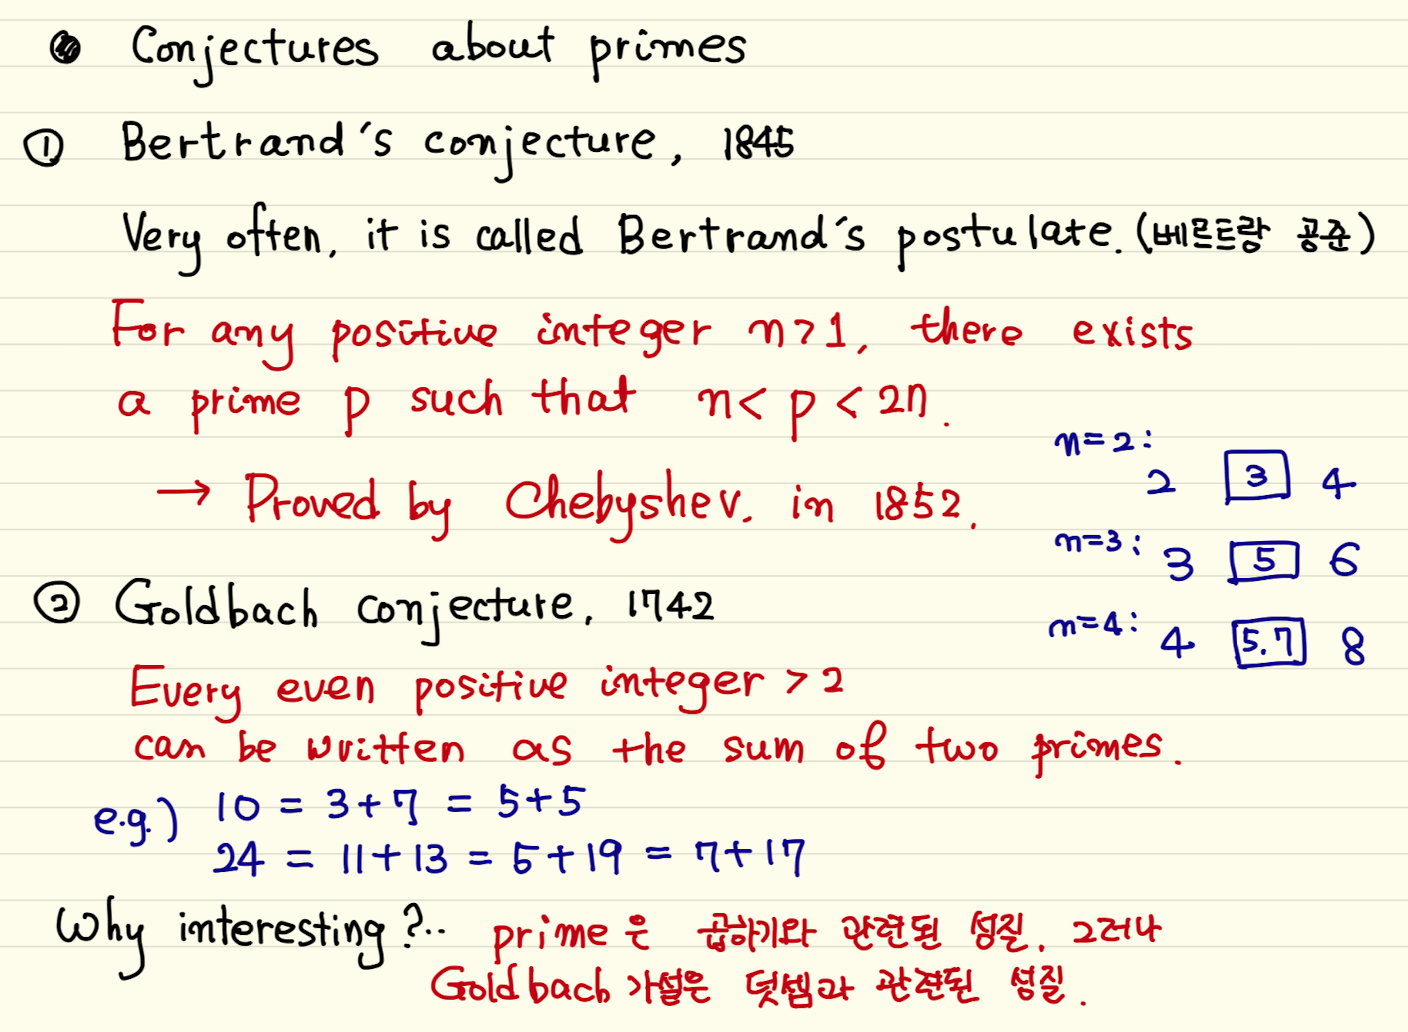 ● Conjectures about primes
① Bertrand's conjecture, 1845
Very often, it is called Bertrand's postulate. (베르트랑 공준)
For any positive integer n>1, there exists
a prime p such that n < p < 2n.
→ Proved by Chebyshev. in 1852.
n=2:
2 3 4
n=3:
3 5 6
n=4:
4 5.7 8
② Goldbach conjecture, 1742
Every even positive integer > 2
can be written as the sum of two primes.
e.g.) 10 = 3+7 = 5+5
24 = 11+13 = 5+19 = 7+17
Why interesting?.. prime은 곱하기와 관련된 성질. 그러나
Goldbach 가설은 덧셈과 관련된 성질.